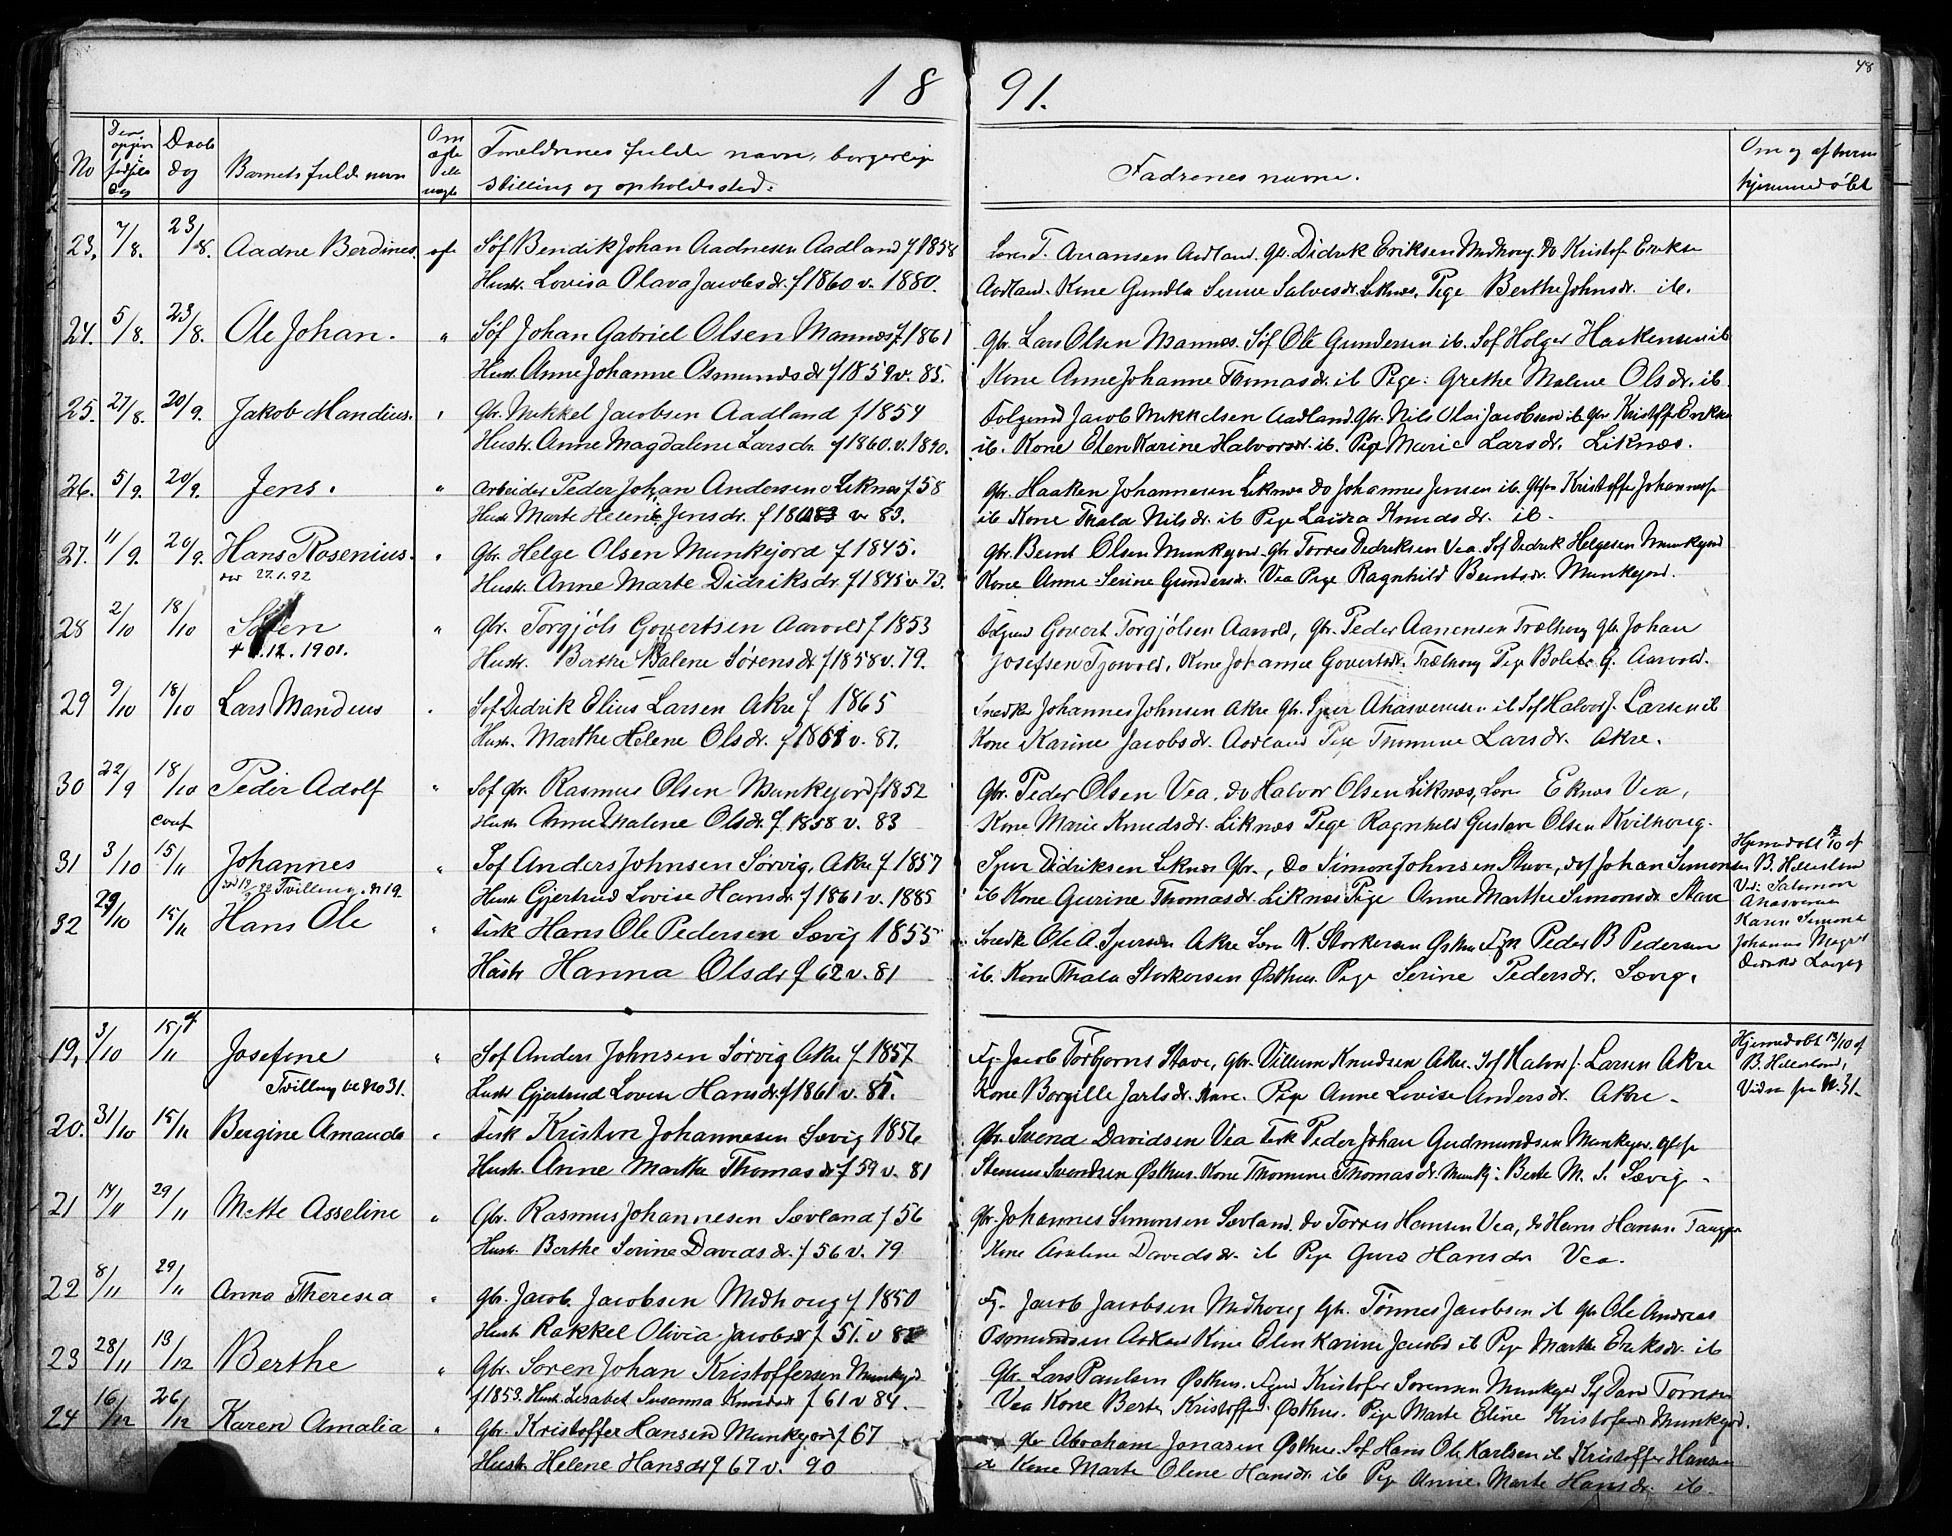 18 91.
48
No
Den opgivn fødsels dag
Daabs dag
Barnets fulde navn
Om ægte eller uægte
Forældrenes fulde navn, borgerlige
stilling og opholdssted.
Faddrenes navne.
Om og af hvem
hjemmedøbt
23. 7/8. 23/8. Aadne Berdines. ægte Søf Bendik Johan Aadnesen Aadland f 1858
Hustr. Lovisa Olava Jacobsdr. f 1860 v. 1880.
T. Aadland. Gbr. Didrik Eriksen Midhoug. Do Kristof Eriksen
Aadland. Kone Gundla Serine Salvesdr. Liknes. Pige Berthe Johnsdr. ib.
24. 5/8. 23/8. Ole Johan. " Søf Johan Gabriel Olsen Mannes f. 1861
Hustr. Anne Johanne Osmundsdr f 1859 v. 85.
Gbr. Lars Olsen Mannes. Søf Ole Gundersen ib. Søf Holger Haakensen ib
Kone Anne Johanne Thomasdr. ib Pige: Grethe Malene Olsdr. ib.
25. 27/8. 20/9. Jakob Mandius. " Gbr. Mikkel Jacobsen Aadland f 1854
Hustr. Anne Magdalene Larsdr. f 1860. v. 1890.
Folgemd Jacob Mikkelsen Aadland. Gbr. Nils Olai Jacobsen ib. Gbr Kristoff. Eriksen
ib. Kone Elen Karine Halvorsdr. ib. Pige Marie Larsdr. Liknæs.
26. 5/9. 20/9. Jens. " Arbeider Peder Johan Andersen Liknes f 58
Hustr Marte Helene Jensdr. f 18 v 83.
Gbr. Haaken Johannesen Liknes Do Johannes Jensen ib. Kristoffer Johannes
ib Kone Thala Nilsdr. ib Pige Laura Knudsdr. ib.
27. 11/9. 20/9. Hans Rosenius. " Gbr. Helge Olsen Munkejord f 1845.
27.1.92
Hustr. Anne Marte Didriksdr. f 1845 v 73.
Gbr. Bernt Olsen Munkejord. Gbr Torres Didriksen Vea. Søf Didrik Helgesen Munkejord
Kone Anne Serine Gundersdr. Vea Pige Ragnhild Berntsdr. Munkejord.
28 2/10 18/10 Søren " Gbr. Torgjøls Govertsen Aarvold f 1853
12. 1901.
Hustr. Berthe Malene Sørensdr f 1858 v. 79.
Folgmd Govert Torgjølsen Aarvold, Gbr. Peder Aanensen Trælhoug Gbr. Johan
Josefsen Tjosvold. Kone Johanne Govertsdr. Trælhoug Pige Bolette G. Aarvold.
29 9/10 18/10 Lars Mandius " Søf Didrik Elius Larsen Akre f 1865
Hustr. Marthe Helene Olsdr. f 1861 v. 87.
Snedker Johannes Johnsen Akre Gbr. Sjur Ahasverusen ib Søf Halvor J. Larsen ib
Kone Karine Jacobsdr. Aadland Pige Thomine Larsdr. Akre.
30 22/9 18/10 Peder Adolf " Søf gbr. Rasmus Olsen Munkejord f 1852
Hustr Anne Malene Olsdr. f 1858 v. 83
Gbr. Peder Olsen Vea. do Halvor Olsen Liknes, Eknes Vea,
Kone Marie Knudsdr. Liknæs Pige Ragnhild Gustava Olsen Kvilhoug.
conf
31 3/10 15/11 Johannes " Søf Anders Johnsen Sørvig, Akre f 1857
Tvilling. n 19.
Hustr Gjertrud Lovise Hansdr. f 1861 v. 1885
Sjur Didriksen Liknes Gbr., Do Simon Johnsen Stave, Søf Johan Simonsen
ib Kone Gurine Thomasdr. Liknes Pige Anne Marthe Simonsdr Stave
Hjemmedøbt /10 af
B. Hillesland
Vid: Salomon
Ahasverus
Karen Simone
Johanne
32 29/10 15/11 Hans Ole " Fisk Hans Ole Pedersen Sævig 1855
Hustr Hanna Olsdr f 62 v. 81
Snedker Ole A. Sjursen Akre K. Storkersen Østhus Peder B Pedersen
ib. Kone Thala Storkersen Østhus. Pige Serine Pedersdr. Sævig.
19, 3/10 15/11 Josefine " Søf Anders Johnsen Sørvig Akre f 1857
Tvilling til No 31.
Hustr Gjertrud Lovise Hansdr. f 1861 v. 85.
Jacob Torbjørns Stave, Gbr. Villum Knudsen Akre. Søf Halvor J. Larsen Akre
Kone Borgille Jarlsdr. Stave. Pige Anne Lovise Andersdr. Akre.
Hjemmedøbt 13/10 af
B. Hillesland,
Vidner fra N. 31.
20. 31/10 15/11 Bergine Amanda " Fisk Kristen Johannesen Sævig 1856
Hustr. Anne Marthe Thomasdr f 59 v. 81
Gbr. Svend Davidsen Vea Fisk Peder Johan Gudmundsen Munkejor.
Svendsen Østhus. Kone Thomine Thomasdr. Munkj: Berte M. S. Sævig.
21 14/11 29/11 Mette Asseline " Gbr. Rasmus Johannesen Sævland f 56
Hustr. Berthe Serine Davidsdr. f 56 v. 79
Gbr. Johannes Simonsen Sævland. do Torres Hansen Vea, do Hans Hansen
Kone Davidsdr. ib Pige Guro Hansdr Vea.
22 8/11 29/11 Anna Theresia " Gbr. Jacob Jacobsen Midhoug f 1850
Hustr Rakkel Olivia Jacobsdr f 51. v
Jacob Jacobsen Midhoug Gbr. Tønnes Jacobsen ib Gbr Ole Andreas
Osmundsen Aadland Kone Elen Karine Jacobs ib Pige Marthe Eriksdr. ib
23 28/11 13/12 Berthe " Gbr. Søren Johan Kristoffersen Munkejord
f 1853. Hust. Lisabet Susanna Knudsdr f 61 v 84.
Gbr. Lars Paulsen Østhus. Kristofer Sørensen Munkejor Torresen
Vea Kone Berte Kristoffers Østhus. Pige Marte Eline Kristofersdr Munkejord.
24 16/12 26/12 Karen Amalia " Gbr. Kristoffer Hansen Munkejord f 67
Hustr. Helene Hansdr f 67 v. 90
Gbr Abraham Jonasen Østhus. Søf Hans Ole Karlsen ib Kristoffer Hansen
ib Kone Marte Olene Hansdr. ib Pige Anne Marte Hansdr. ib.